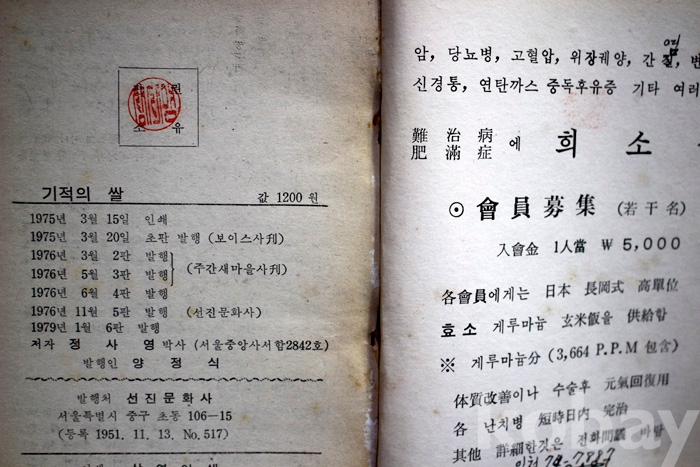 판 권
소 유
기적의 쌀 값 1200 원
1975년 3월 15일 인쇄
1975년 3월 20일 초판 발행 (보이스사刊)
1976년 3월 2판 발행
1976년 5월 3판 발행 (주간새마을사刊)
1976년 6월 4판 발행
1976년 11월 5판 발행 (선진문화사)
1979년 1월 6판 발행
저자 정 사 영 박사 (서울중앙사서함2842호)
발행인 양 정 식
발행처 선진문화사
서울특별시 중구 초동 106—15
(등록 1951. 11. 13. No.517)
암, 당뇨병, 고혈압, 위장궤양, 간염, 변
신경통, 연탄까스 중독후유증 기타 여러
難治病
肥滿症 에 희 소
⊙ 會員募集 (若干名)
入會金 1人當 ₩ 5,000
各會員에게는 日本 長岡式 高單位
효소 게루마늄 玄米飯을 供給함
※ 게루마늄分 (3,664 P.P.M 包含)
体質改善이나 수술후 元氣回復用
各 난치병 短時日内 完治
其他 詳細한것은 전화問議 바람
인천 79-7887
kobay